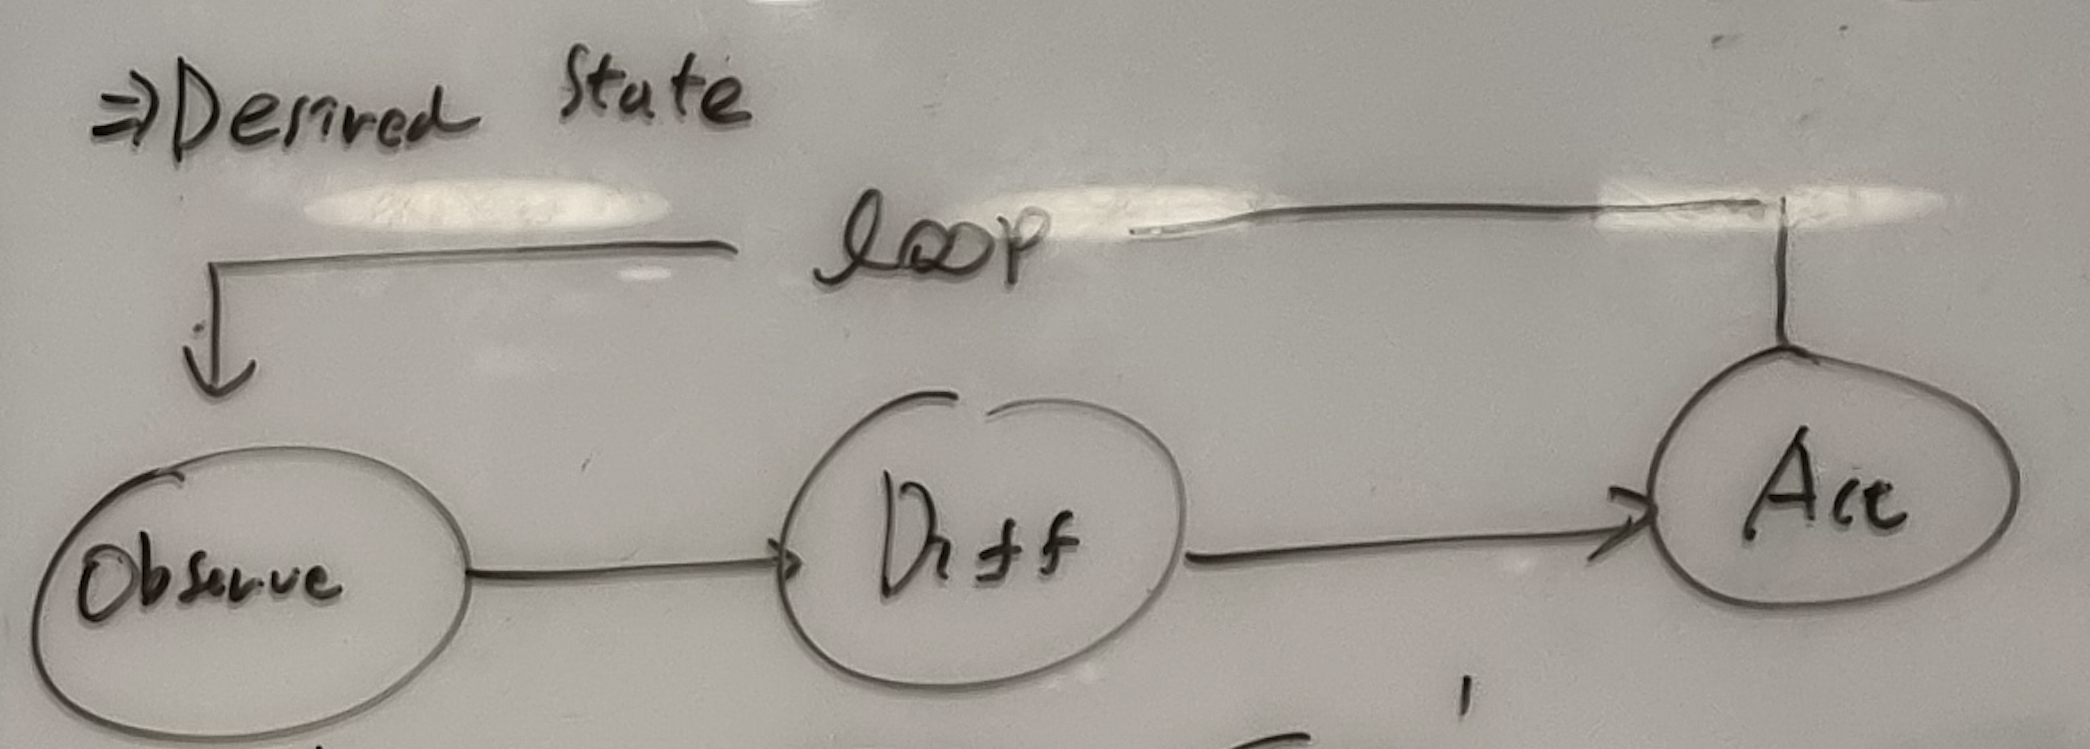 ⇒Desired State
loop
Observe
Diff
Act